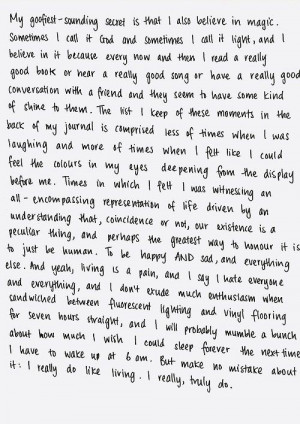 My goofiest-sounding secret is that I also believe in magic.
Sometimes I call it God and sometimes I call it light, and I
believe in it because every now and then I read a really
good book or hear a really good song or have a really good
conversation with a friend and they seem to have some kind
of shine to them. The list I keep of these moments in the
back of my journal is comprised less of times when I was
laughing and more of times when I felt like I could
feel the colours in my eyes deepening from the display
before me. Times in which I felt I was witnessing an
all-encompassing representation of life driven by an
understanding that, coincidence or not, our existence is a
peculiar thing, and perhaps the greatest way to honour it is
to just be human. To be happy AND sad, and everything
else. And yeah, living is a pain, and I say I hate everyone
and everything, and I don't exude much enthusiasm when
sandwiched between fluorescent lighting and vinyl flooring
for seven hours straight, and I will probably mumble a bunch
about how much I wish I could sleep forever the next time
I have to wake up at 6 am. But make no mistake about
it: I really do like living. I really, truly do.